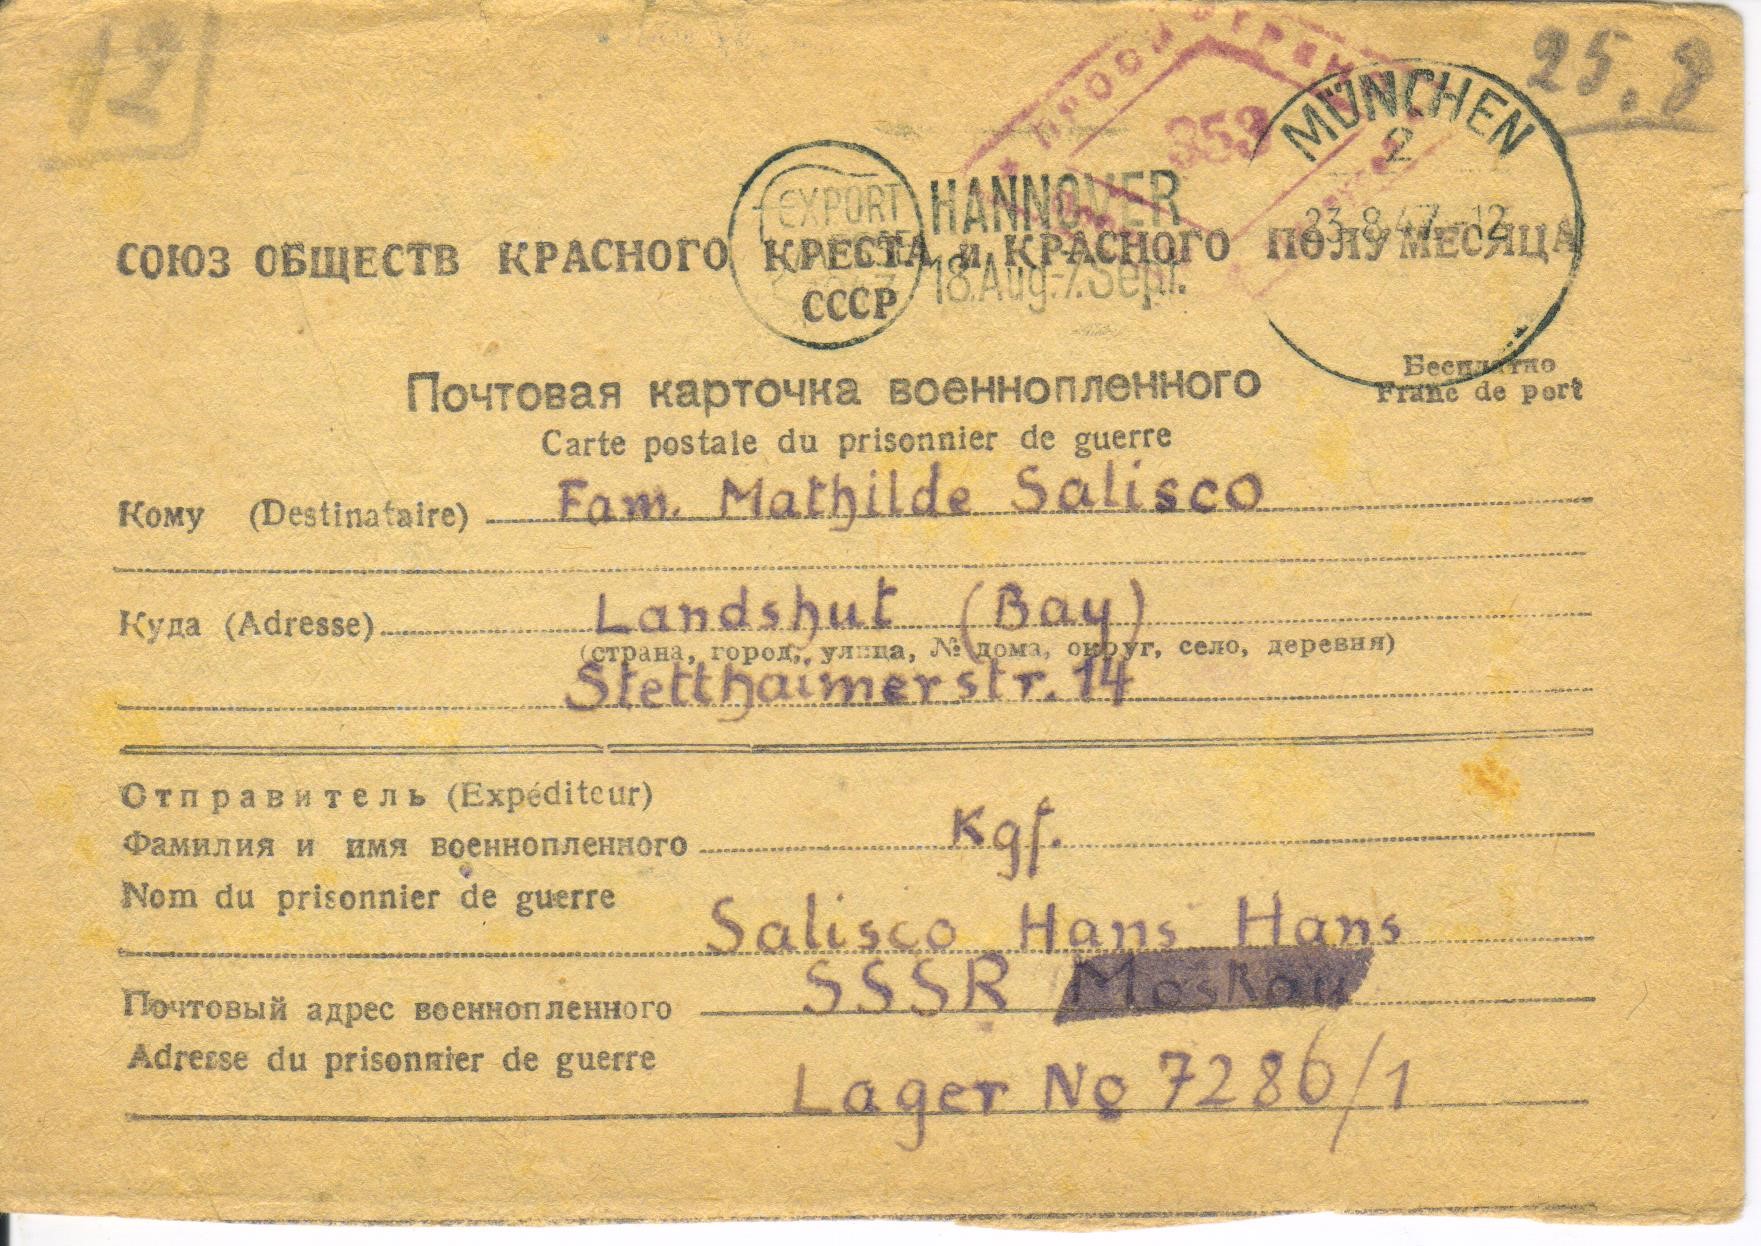 12
25.8
MÜNCHEN
2
23.8.47-12
853
EXPORT
HANNOVER
18.Aug.-7.Sept.
СОЮЗ ОБЩЕСТВ КРАСНОГО КРЕСТА и КРАСНОГО ПОЛУМЕСЯЦА
СССР
Бесплатно
Franc de port
Почтовая карточка военнопленного
Carte postale du prisonnier de guerre
Кому (Destinataire) Fam. Mathilde Salisco
Куда (Adresse) Landshut (Bay)
(страна, город, улица, № дома, округ, село, деревня)
Stetthaimerstr. 14
Отправитель (Expéditeur)
Фамилия и имя военнопленного Kgf.
Nom du prisonnier de guerre
Salisco Hans Hans
SSSR Moskau
Почтовый адрес военнопленного
Adresse du prisonnier de guerre
Lager No 7286/1